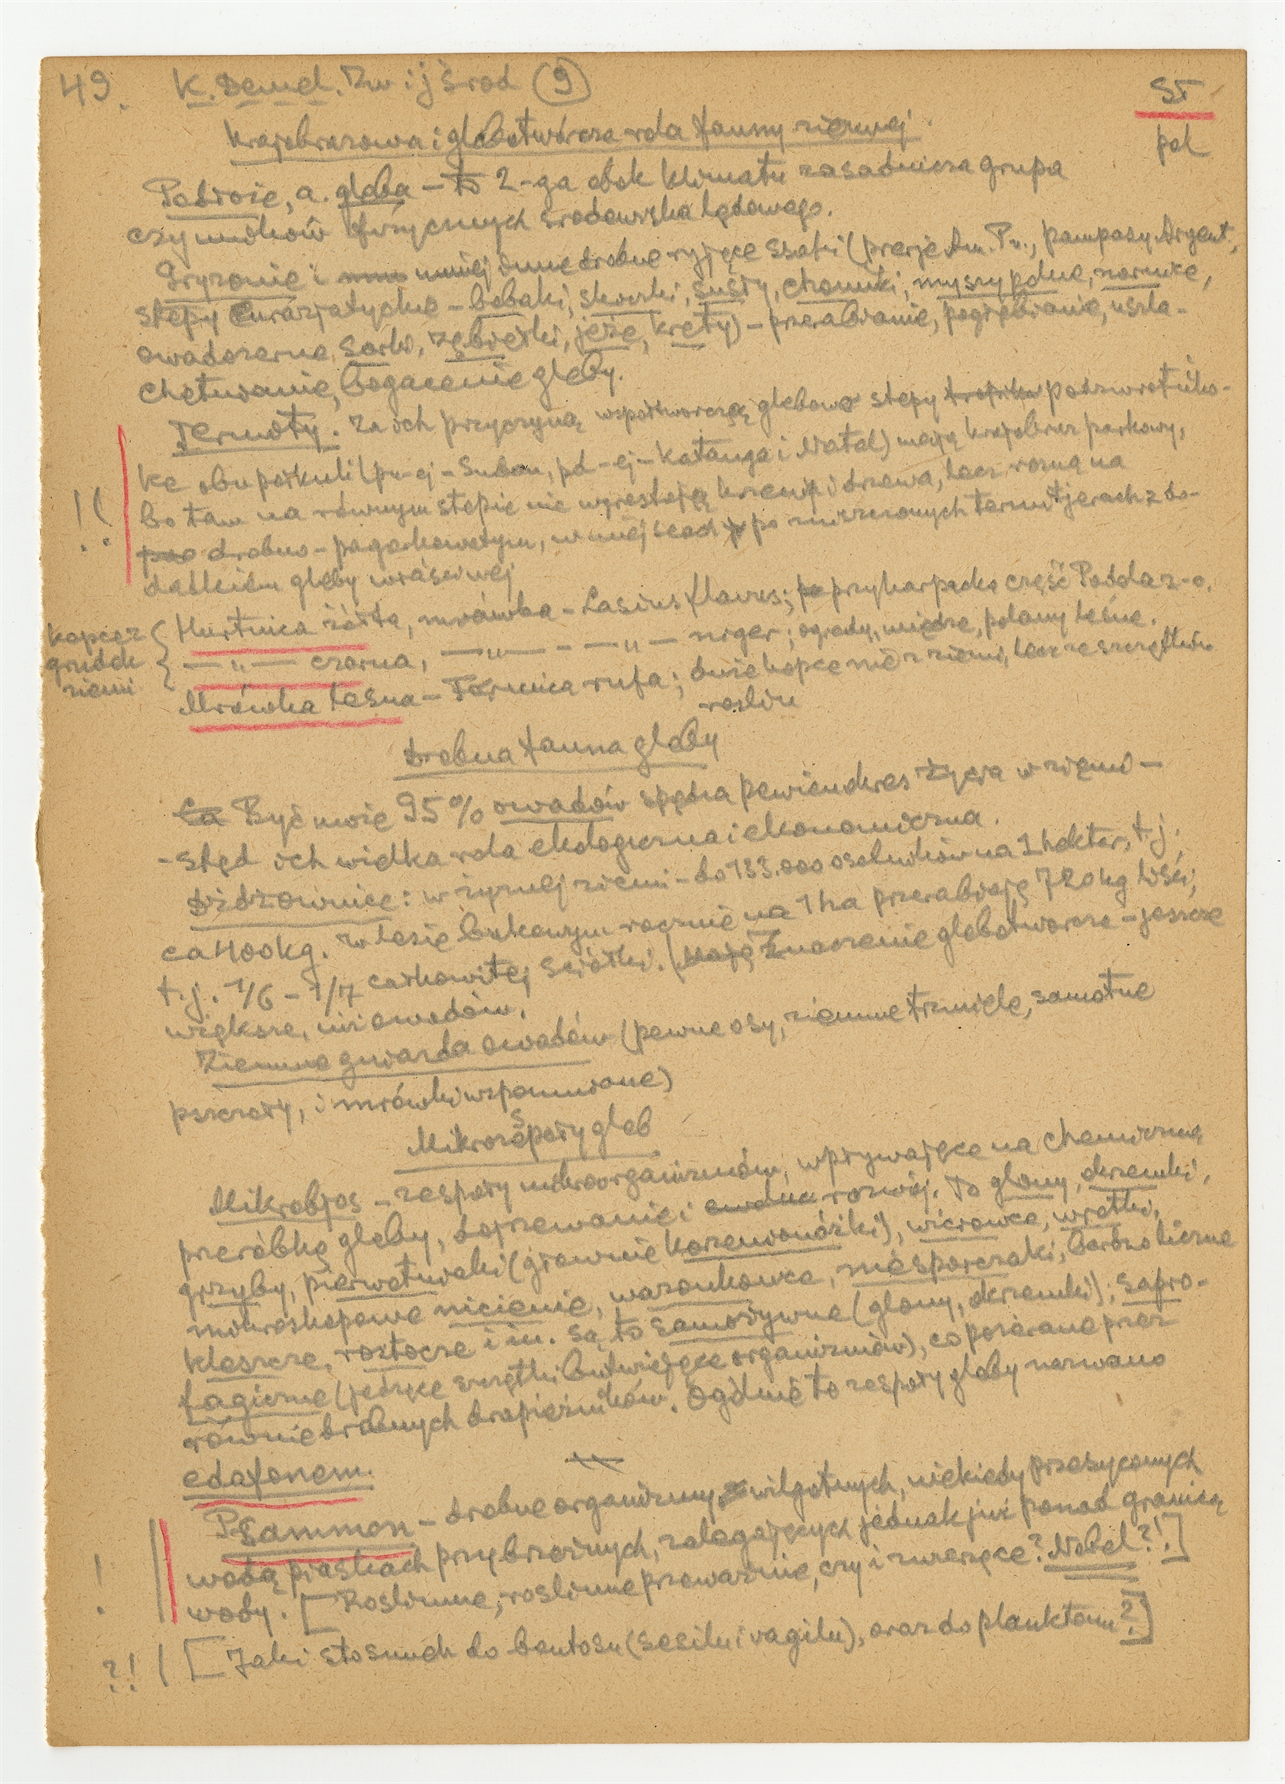 49. K. Demel. Zw i j środ (9)
ST
pol
Krajobrazowa i glebotwórcza rola fauny ziemnej.
Podłoże, a. gleba – to 2-ga obok klimatu zasadnicza grupa
czynników fizycznych środowiska lądowego.
Gryzonie i mniej inne drobne ryjące ssaki (prerje Am. Pn., pampasy Argent.,
stepy Eurazjatyckie – bobaki, skoczki, susły, chomiki, myszy polne, nornice,
owadożerne, sorki, ząbiełki, jeże, krety) – przerabianie, pogrzebianie, uszla-
chetnianie, bogacenie gleby.
Termity. Za ich przyczyną współtworczą glebową stepy podzwrotniko-
ke obu półkuli (pn-ej – Sudan, pd-ej – Katanga i Natal) mają krajobraz parkowy,
bo tam na równym stepie nie wyrastają krzewy i drzewa, lecz rosną na
drobno-pagórkowatym, w miejscach po zniszczonych termitjerach z do-
datkiem gleby właściwej
!( . .
kopce z
grudek
ziemi
Hurtnica żółta, mrówka – Lasius flavus; przykarpacka część Podla z-o.
— „ — czarna, — „ — – — „ — niger; ogrody, miedze, polany leśne.
Mrówka leśna – Formica rufa; duże kopce nie z ziemi, lecz ze szczątków
roślin
Drobna fauna gleby
Być może 95% owadów spędza pewien okres życia w ziemi –
– stąd ich wielka rola ekologiczna i ekonomiczna.
Dżdżownice: w żyznej ziemi – do 133.000 osobników na 1 hektar, t.j.
ca 400 kg. W lesie bukowym rocznie na 1 ha przerabiają 720 kg liści,
t.j. 1/6 – 1/7 całkowitej ściółki. (Mają znaczenie glebotwórcze – jeszcze
większe, niż owadów.
Ziemna gwarda owadów (pewne osy, ziemne trzmiele, samotne
pszczoły, i mrówki wspomniane)
Mikrozespoły gleb
Mikrobjos – zespoły mikroorganizmów, wpływające na chemiczną
przeróbkę gleby, dojrzewanie i rozwój. To glony, okrzemki,
grzyby, pierwotniaki (głównie korzenionóżki), wiciowce, wrotki,
mikroskopowe nicienie, wazonkowce, niesporczaki, bardzo liczne
kleszcze, roztocze i in. Są to samożywne (glony, okrzemki); sapro-
fagiczne (jedzące szczątki butwiejące organizmów), co pożerane przez
równie drobnych drapieżników. Ogólnie to zespoły gleby nazwano
edafonem.
Psammon – drobne organizmy, wilgotnych, niekiedy przesyconych
wodą piaskach przybrzeżnych, zalegających jednak już ponad granicą
wody. [Roślinne, roślinne przeważnie, czy i zwierzęce? Nobel?!]
! .
?! [Jaki stosunek do bentosu (sesilni i vagilni), oraz do planktonu?]